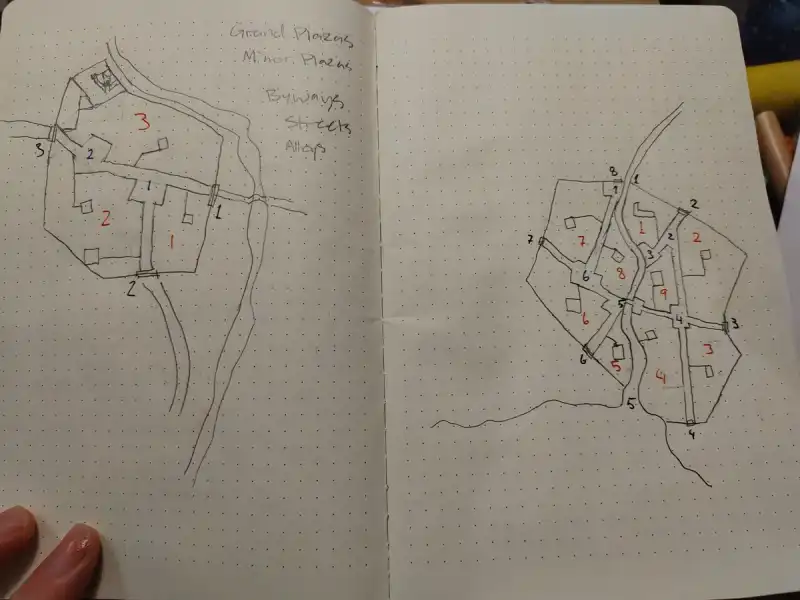 Grand Plazas
Minor Plazas
Byways
Streets
Alleys
3
3
2
1
1
2
1
2
8 1
1
2
1
7
2
2
7
3
6
8
9
5
6
4
3
6
3
5
4
5
4